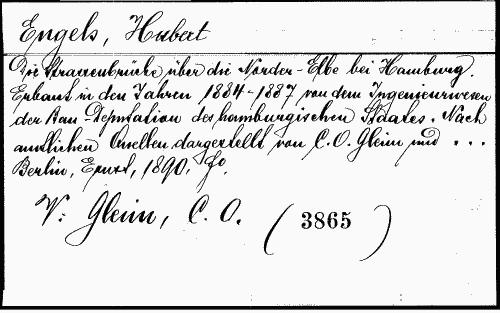 Engels, Hubert
Die Strassenbrücke über die Norder-Elbe bei Hamburg.
Erbaut in den Jahren 1884-1887 von dem Ingenieurwesen
der Bau-Deputation des hamburgischen Staates. Nach
amtlichen Quellen dargestellt von C.O. Gleim und ...
Berlin, Ernst, 1890. fo.
V: Gleim, C. O. (3865)